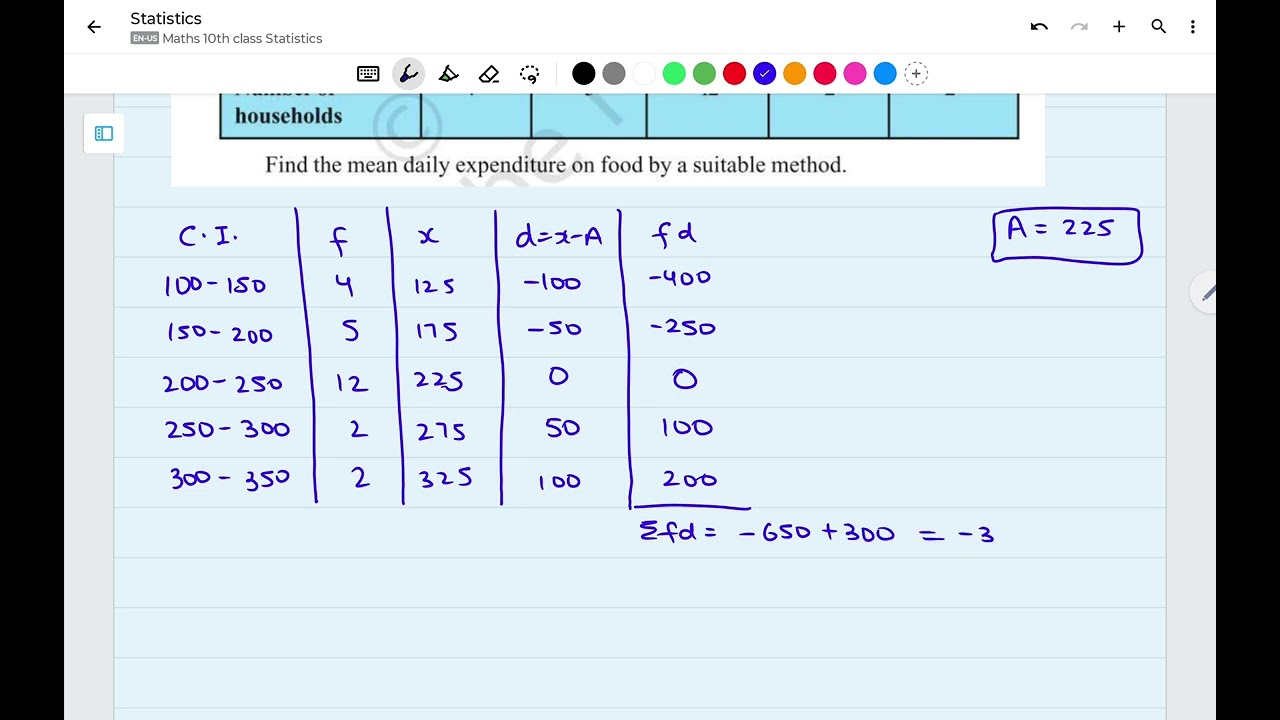 Statistics
EN-US Maths 10th class Statistics
households
Find the mean daily expenditure on food by a suitable method.
C.I. f x d=x-A fd A = 225
100-150 4 125 -100 -400
150-200 5 175 -50 -250
200-250 12 225 0 0
250-300 2 275 50 100
300-350 2 325 100 200
Σfd = -650+300 = -3